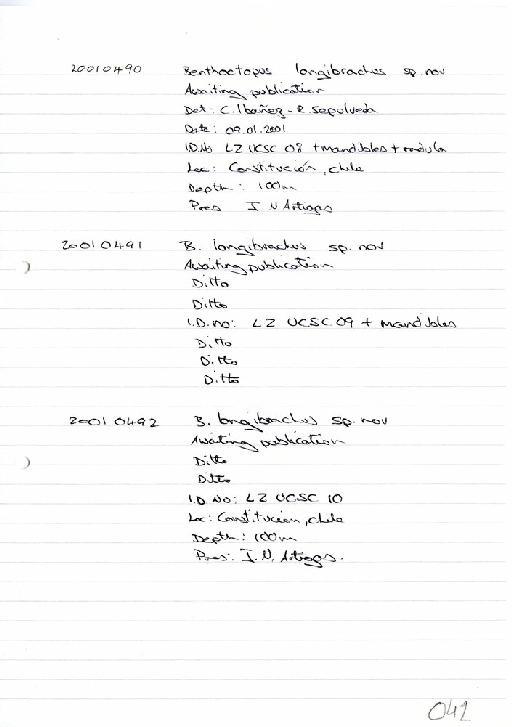 20010490 Benthoctopus longibrachus sp. nov
Awaiting publication
Det: C. Ibañez - R. Sepulveda
Date: 09.01.2001
I.D.No LZ UCSC 08 + mandibles + radula
Loc: Constitución, Chile
Depth: 100m
Pres I N Artiags
20010491 B. longibrachus sp. nov
Awaiting publication
Ditto
Ditto
I.D. no: LZ UCSC 09 + mandibles
Ditto
Ditto
Ditto
20010492 B. longibrachus sp. nov
Awaiting publication
Ditto
Ditto
I.D No: LZ UCSC 10
Loc: Constitución, Chile
Depth: 100m
Pres: I. N. Artiags.
042